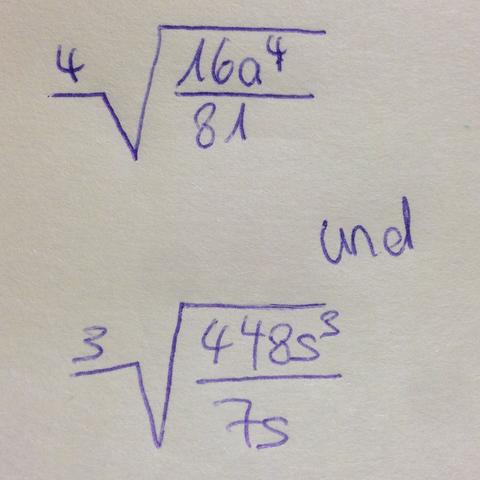 ⁴√(16a⁴/81)
und
³√(448s³/7s)